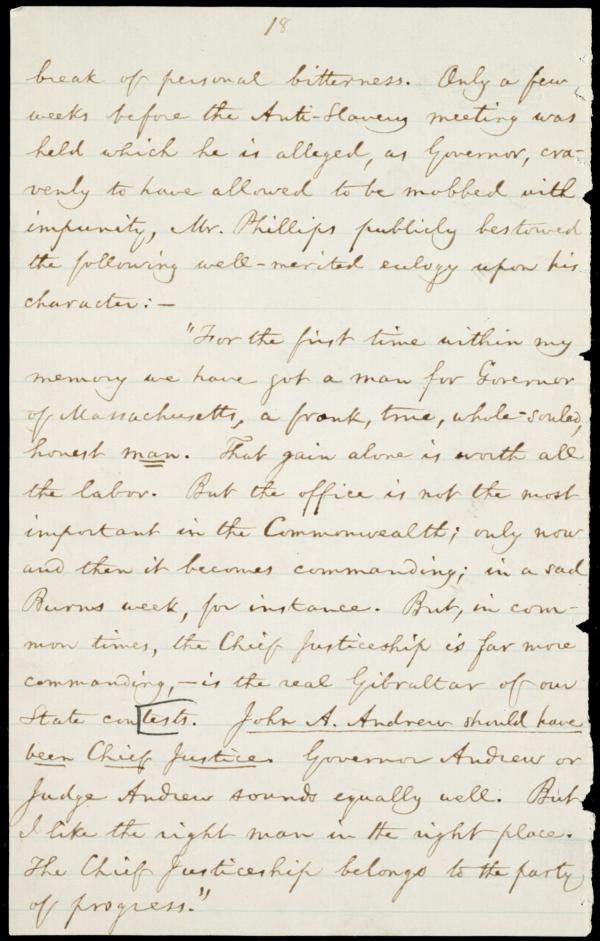 18
break of personal bitterness. Only a few
weeks before the Anti-Slavery meeting was
held which he is alleged, as Governor, cra-
venly to have allowed to be mobbed with
impunity, Mr. Phillips publicly bestowed
the following well-merited eulogy upon his
character:—
"For the first time within my
memory we have got a man for Governor
of Massachusetts, a frank, true, whole-souled,
honest man. That gain alone is worth all
the labor. But the office is not the most
important in the Commonwealth; only now
and then it becomes commanding; in a sad
Burns week, for instance. But, in com-
mon times, the Chief Justiceship is far more
commanding,—is the real Gibraltar of our
State contests. John A. Andrew should have
been Chief Justice. Governor Andrew or
Judge Andrew sounds equally well. But
I like the right man in the right place.
The Chief Justiceship belongs to the party
of progress."